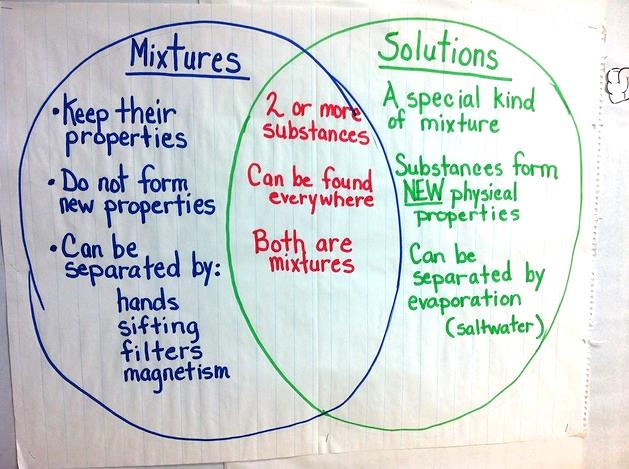 Mixtures
• Keep their
properties
• Do not form
new properties
• Can be
separated by:
hands
sifting
filters
magnetism
2 or more
substances
Can be found
everywhere
Both are
mixtures
Solutions
A special kind
of mixture
Substances form
NEW physical
properties
Can be
separated by
evaporation
(saltwater)